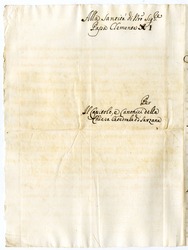 Alla Santità di Nro Sigre
Papa Clemente XI
Per
Il Capitolo, e Canonici della
Chiesa Cattedrale di Sarzana